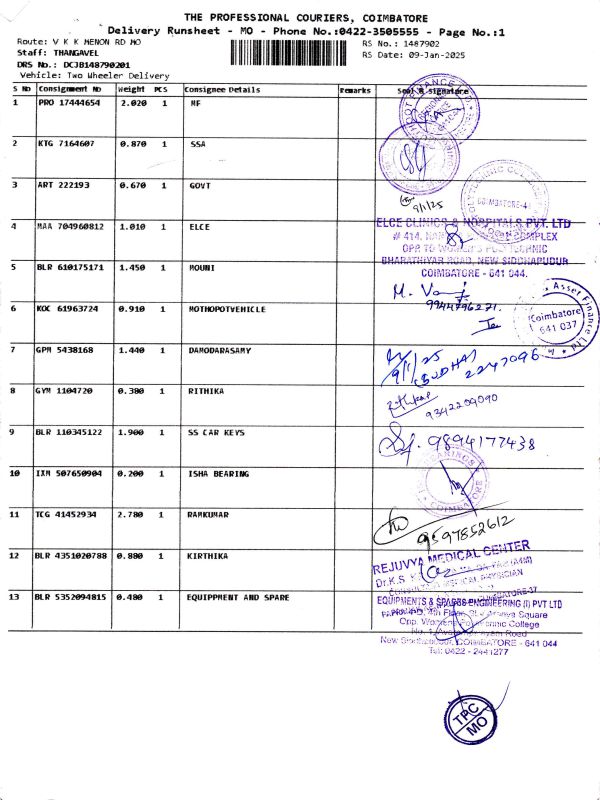 THE PROFESSIONAL COURIERS, COIMBATORE
Delivery Runsheet - MO - Phone No.:0422-3505555 - Page No.:1
Route: V K K MENON RD MO
RS No.: 1487902
Staff: THANGAVEL
RS Date: 09-Jan-2025
DRS No.: DCJB148790201
Vehicle: Two Wheeler Delivery
S No Consignment No Weight PCS Consignee Details Remarks Seal & signature
1 PRO 17444654 2.020 1 MF
2 KTG 7164607 0.870 1 SSA
3 ART 222193 0.670 1 GOVT
9/1/25
COIMBATORE-41
4 MAA 704960812 1.010 1 ELCE
ELCE CLINICS & HOSPITALS PVT. LTD
# 414, COMPLEX
OPP TO WOMEN'S POLYTECHNIC
BHARATHIYAR ROAD, NEW SIDDHAPUDUR
COIMBATORE - 641 044.
5 BLR 610175171 1.450 1 MOUNI
9944796271
6 KOC 61963724 0.910 1 MOTHOPOTVEHICLE
Asset Finance Ltd
Coimbatore
641 037
7 GPM 5438168 1.440 1 DAMODARASAMY
9/1/25
2247096
8 GYM 1104720 0.380 1 RITHIKA
9342209090
9 BLR 110345122 1.900 1 SS CAR KEYS
9894177438
10 IXM 507650904 0.200 1 ISHA BEARING
BEARINGS
COIMBATORE
11 TCG 41452934 2.780 1 RAMKUMAR
9597852612
12 BLR 4351020788 0.880 1 KIRTHIKA
REJUVYA MEDICAL CENTER
Dr.K.S
PHYSICIAN
13 BLR 5352094815 0.480 1 EQUIPPMENT AND SPARE
EQUIPMENTS & SPARES ENGINEERING (I) PVT LTD
4th Floor, Square
Opp. Womens Polytechnic College
No. 1, Road
New Siddhapudur, COIMBATORE - 641 044
Tel: 0422 - 2441277
TPC
MO